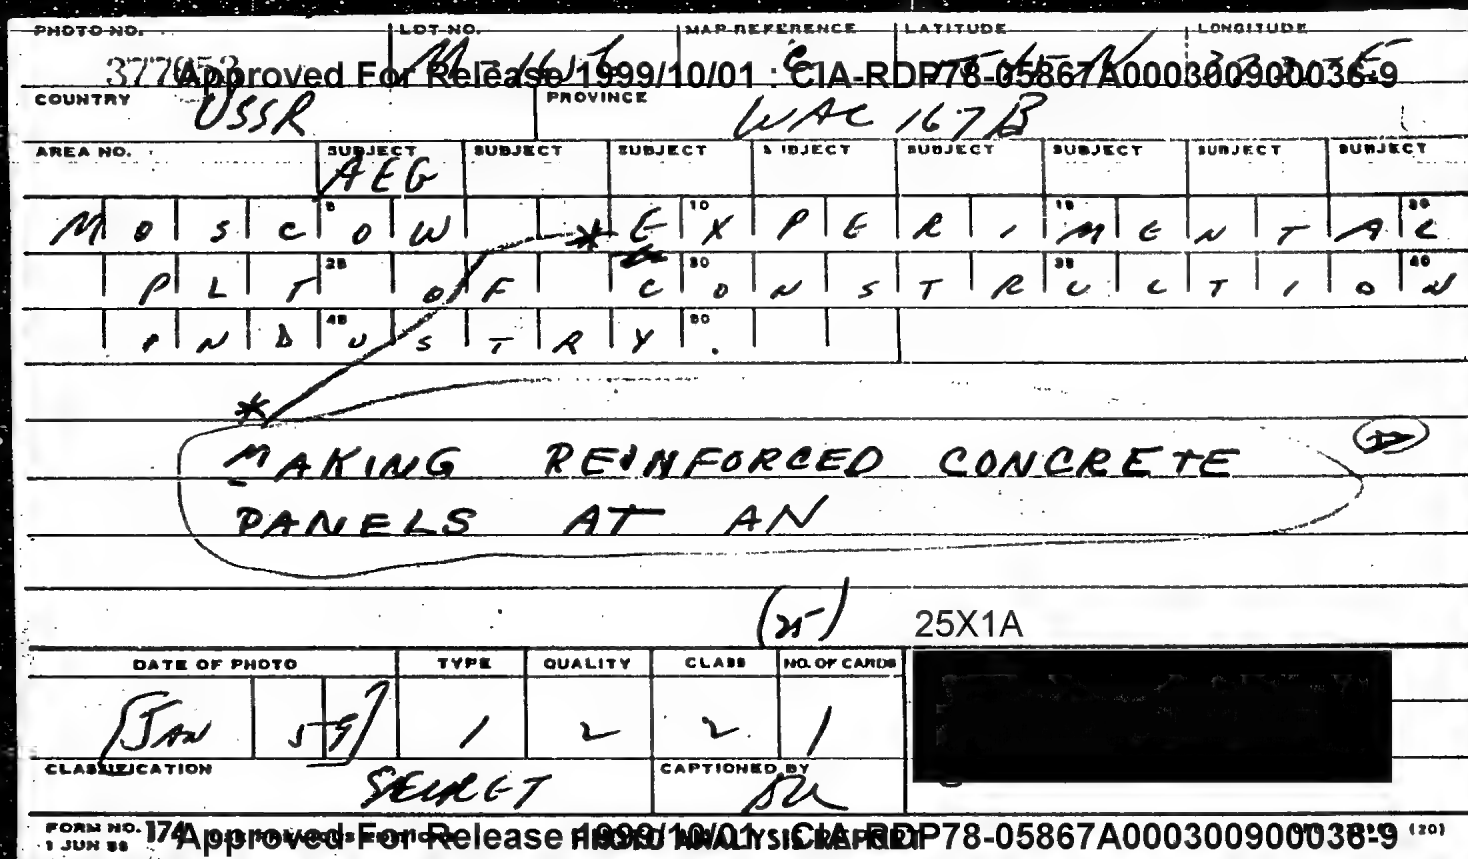 PHOTO NO. LOT NO. MAP REFERENCE LATITUDE LONGITUDE
Approved For Release 1999/10/01 : CIA-RDP78-05867A000300900036-9
COUNTRY USSR PROVINCE WAC 167B
AREA NO. SUBJECT SUBJECT SUBJECT SUBJECT SUBJECT SUBJECT SUBJECT SUBJECT
AEG
MOSCOW * EXPERIMENTAL
PLT OF CONSTRUCTION
INDUSTRY.
*
MAKING REINFORCED CONCRETE
PANELS AT AN
(25) 25X1A
DATE OF PHOTO TYPE QUALITY CLASS NO. OF CARDS
[JAN 59] 1 2 2 1
CLASSIFICATION SECRET CAPTIONED BY
FORM NO. 174 Approved For Release 1999/10/01 : CIA-RDP78-05867A000300900036-9 (20)
1 JUN 55 PHOTO ANALYSIS REPORT